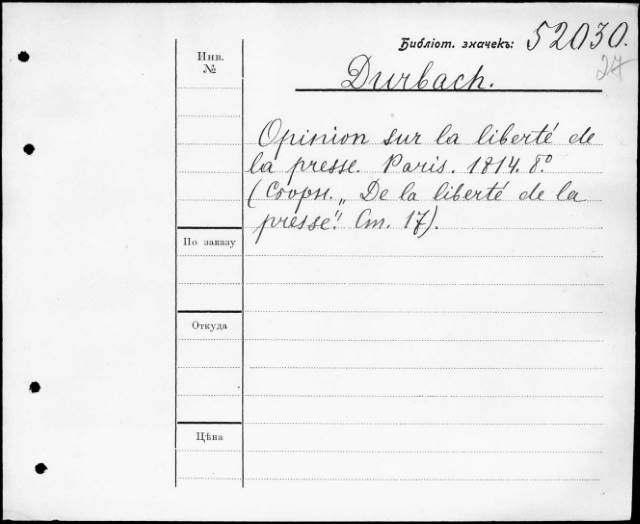 Библіот. значекъ: 52030.
27
Инв.
№
Durbach.
Opinion sur la liberté de
la presse. Paris. 1814. 8º
(Сборн. „De la liberté de la
presse". Ст. 17).
По заказу
Откуда
Цѣна